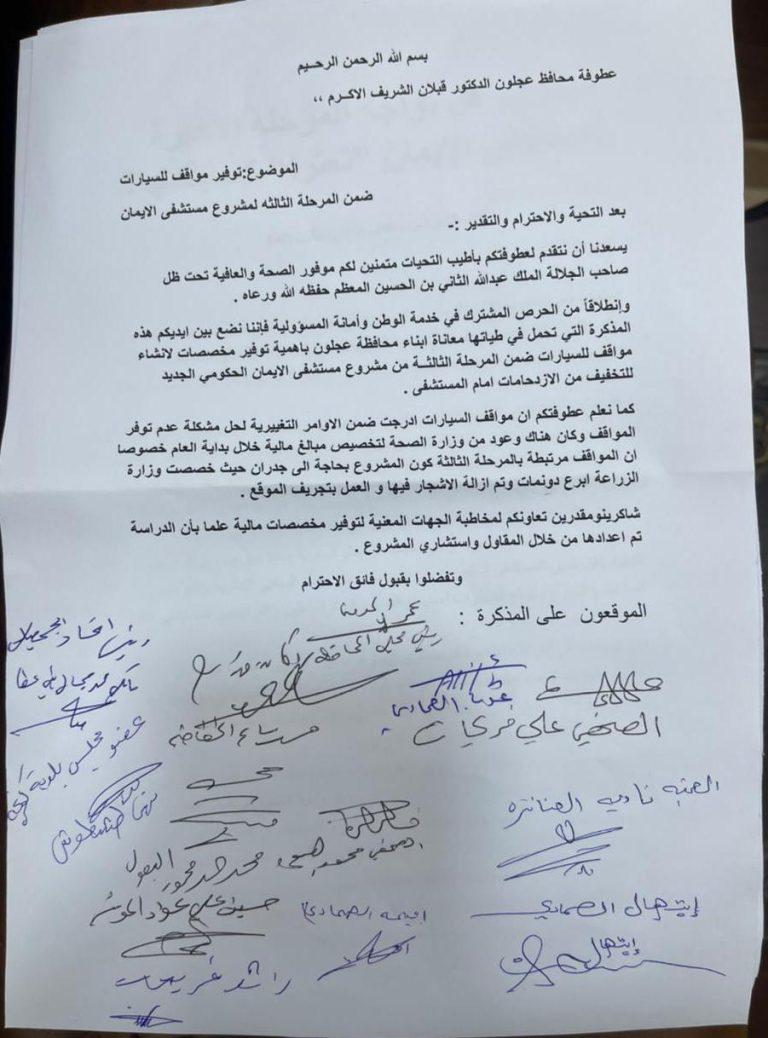 بسم الله الرحمن الرحـيم
عطوفة محافظ عجلون الدكتور قبلان الشريف الاكـرم ،،
الموضوع:توفير مواقف للسيارات
ضمن المرحلة الثالثه لمشروع مستشفى الايمان
بعد التحية والاحترام والتقدير :-
يسعدنا أن نتقدم لعطوفتكم بأطيب التحيات متمنين لكم موفور الصحة والعافية تحت ظل
صاحب الجلالة الملك عبدالله الثاني بن الحسين المعظم حفظه الله ورعاه .
وإنطلاقاً من الحرص المشترك في خدمة الوطن وأمانة المسؤولية فإننا نضع بين ايديكم هذه
المذكرة التي تحمل في طياتها معاناة ابناء محافظة عجلون باهمية توفير مخصصات لانشاء
مواقف للسيارات ضمن المرحلة الثالثـة من مشروع مستشفى الايمان الحكومي الجديد
للتخفيف من الازدحامات امام المستشفى .
كما نعلم عطوفتكم ان مواقف السيارات ادرجت ضمن الاوامر التغييرية لحل مشكلة عدم توفر
المواقف وكان هناك وعود من وزارة الصحة لتخصيص مبالغ مالية خلال بداية العام خصوصا
ان المواقف مرتبطة بالمرحلة الثالثة كون المشروع بحاجة الى جدران حيث خصصت وزارة
الزراعة ابرع دونمات وتم ازالة الاشجار فيها و العمل بتجريف الموقع .
شاكرينومقدرين تعاونكم لمخاطبة الجهات المعنية لتوفير مخصصات مالية علما بأن الدراسة
تم اعدادها من خلال المقاول واستشاري المشروع .
وتفضلوا بقبول فائق الاحترام
الموقعون على المذكرة :
رئيس
عضو مجلس بلدية
الصحفي علي فريحات
ناديه العنانزه
محمد محمود البعول
حسين علي عواد
اميمه الصمادي
إبتهال الصمادي
إبتهال
راشد فريحات